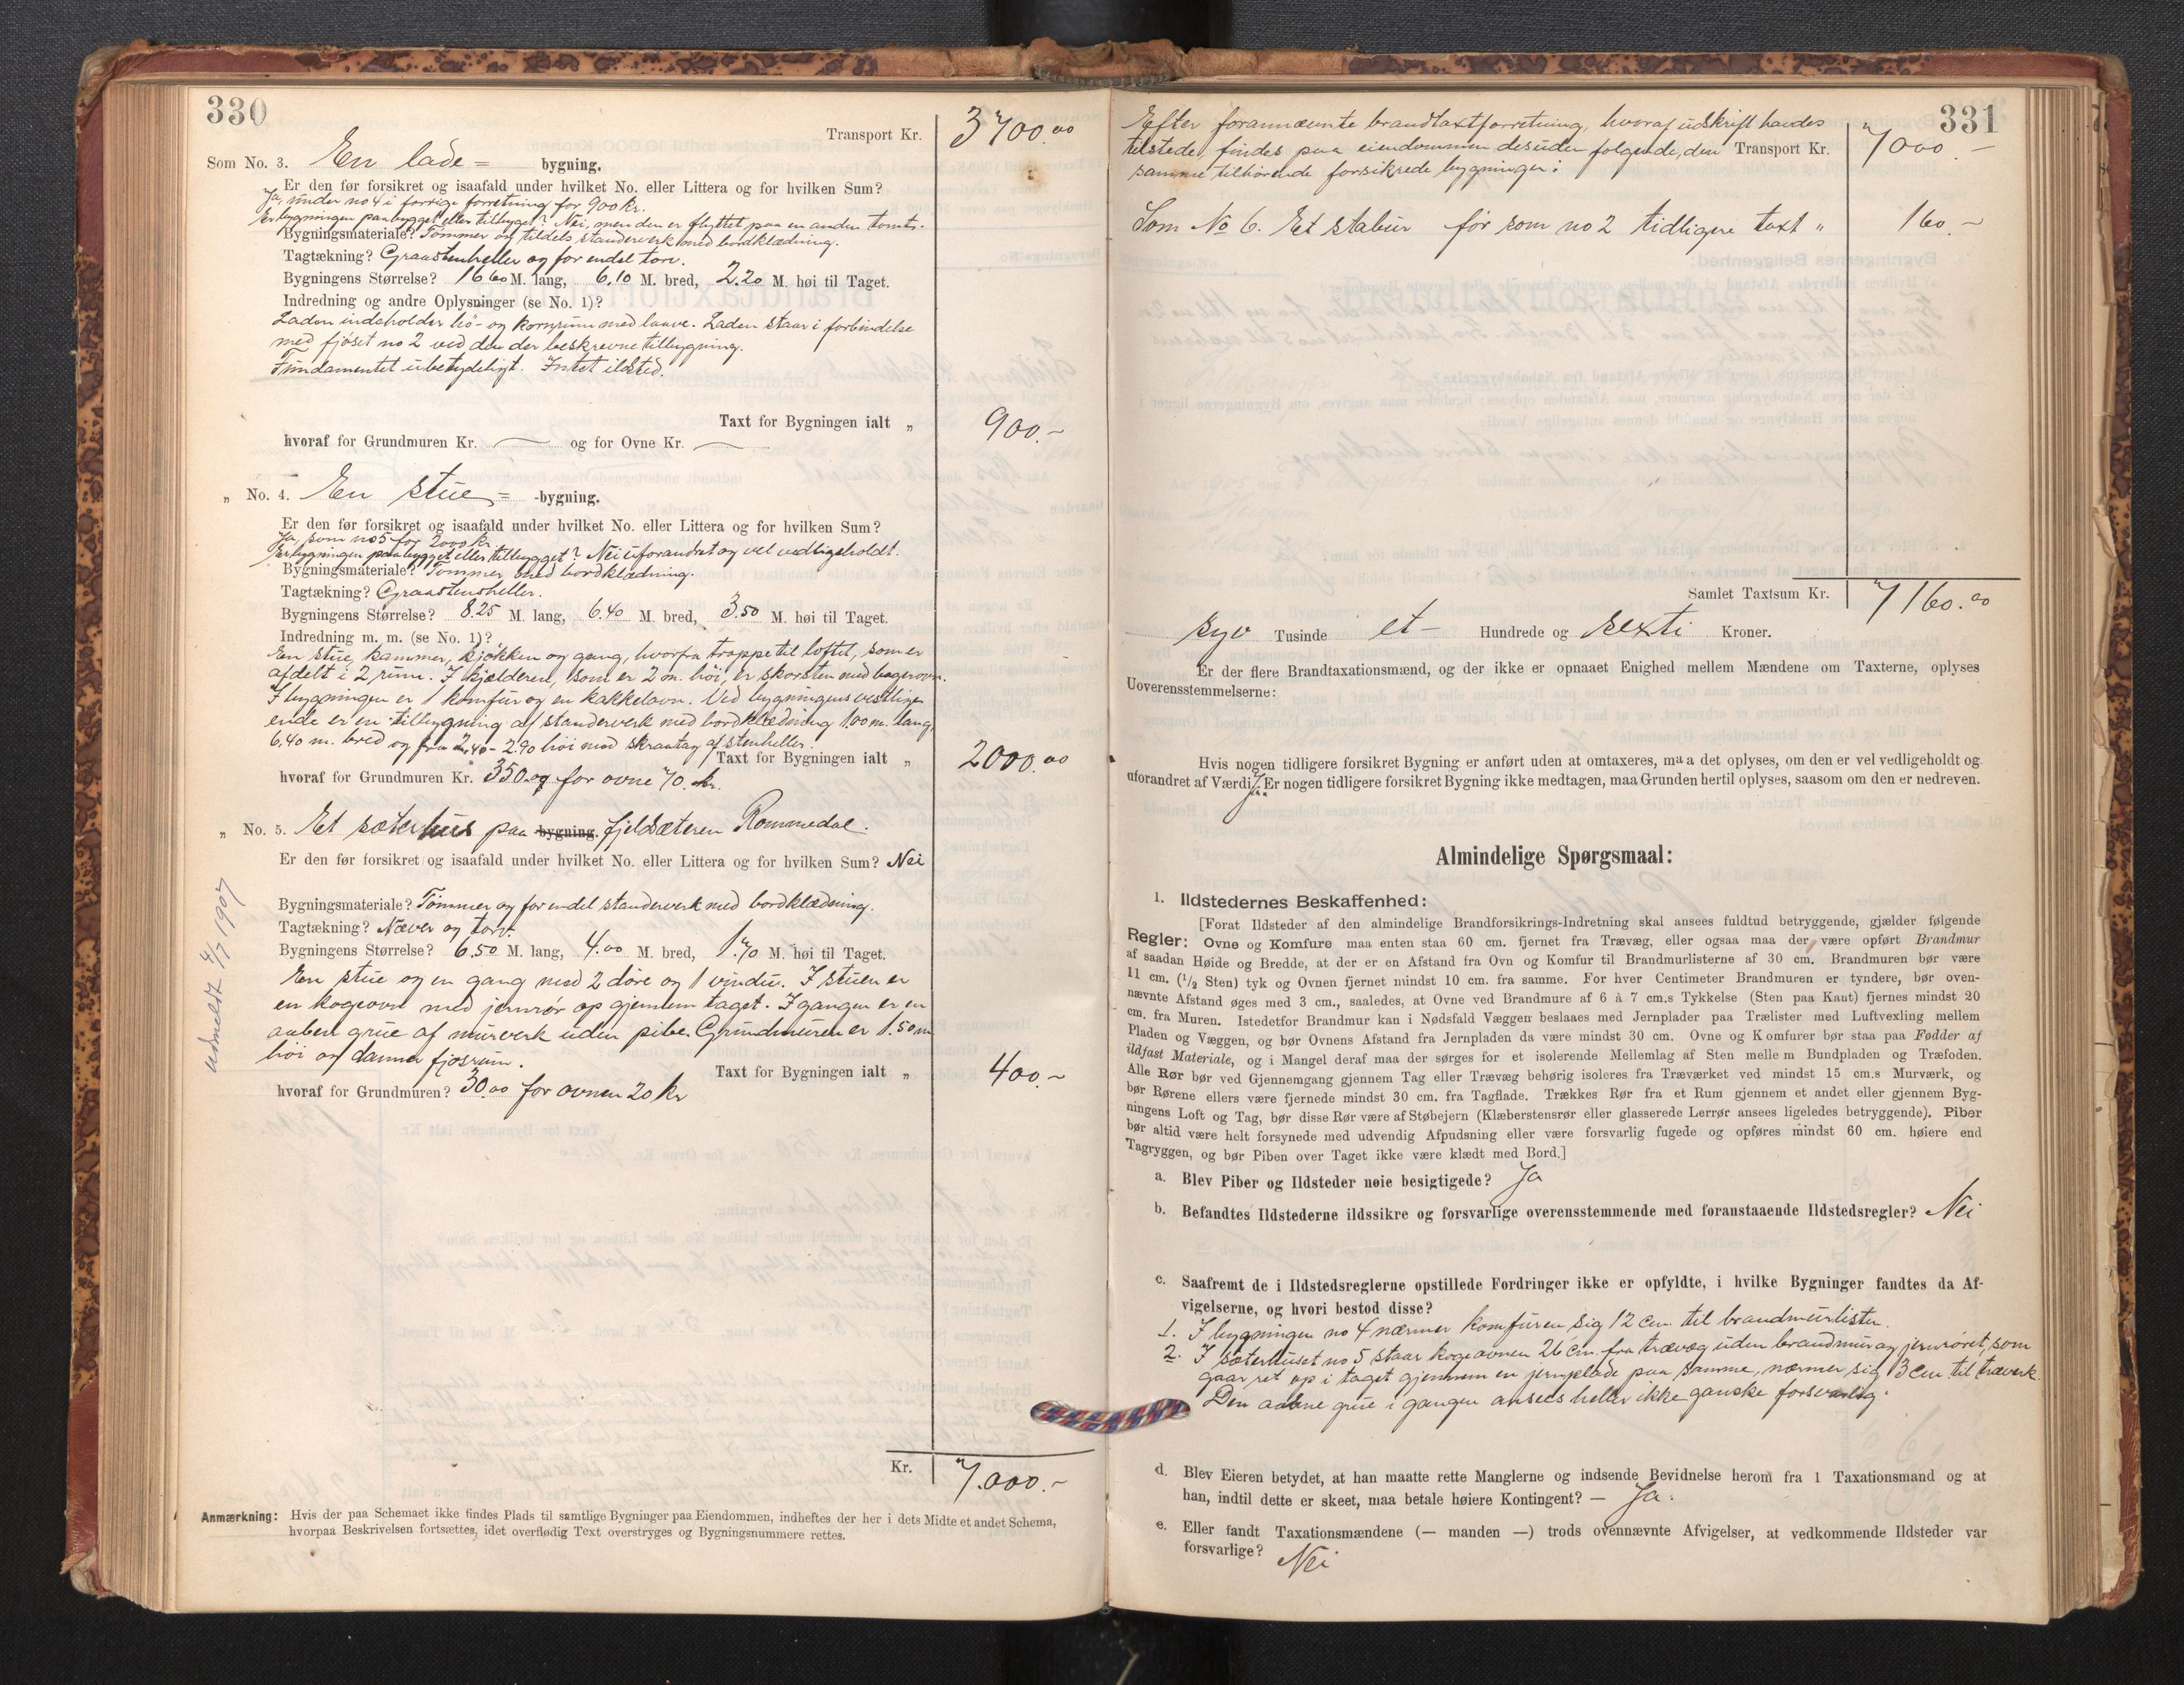 330
Transport Kr. 3700.00
Som No. 3. En lade = bygning.
Er den før forsikret og isaafald under hvilket No. eller Littera og for hvilken Sum?
Ja, under no 4 i forrige forretning for 900 kr.
Er bygningen paabygget eller tilbygget? Nei, men den er flyttet paa en anden tomt.
Bygningsmateriale? Tømmer og tildels standerverk med bordklædning.
Tagtækning? Graastenheller og for endel torv.
Bygningens Størrelse? 16 60 M. lang, 6.10 M. bred, 2.20 M. høi til Taget.
Indredning og andre Oplysninger (se No. 1)?
Laden indeholder hö- og kornrum med laave. Laden staar i forbindelse
med fjöset no 2 ved den der beskrevne tilbygning.
Fundamentet ubetydeligt. Intet ildsted.
Taxt for Bygningen ialt „ 900.-
hvoraf for Grundmuren Kr. — og for Ovne Kr. —
„ No. 4. En stue = -bygning.
Er den før forsikret og isaafald under hvilket No. eller Littera og for hvilken Sum?
Ja, som no 5 for 2000 kr.
Er bygningen paabygget eller tilbygget? Nei uforandret og vel vedligeholdt.
Bygningsmateriale? Tømmer med bordklædning.
Tagtækning? Graastensheller.
Bygningens Størrelse? 8.25 M. lang, 6.40 M. bred, 3.50 M. høi til Taget.
Indredning m. m. (se No. 1)?
En stue, kammer, kjökken og gang, hvorfra trappe til loftet, som er
afdelt i 2 rum. I kjælderen, som er 2 m. höi, er skorsten med bagerovn.
I bygningen er 1 komfur og en kakkelovn. Ved bygningens vestlige
ende er en tilbygning af standerverk med bordklædning 1.00 m. lang,
6,40 m. bred og fra 2.40 - 2.90 höi med skraatag af stenheller.
Taxt for Bygningen ialt „ 2000.00
hvoraf for Grundmuren Kr. 350. og for ovne 70. kr.
„ No. 5. Et sæterhus paa bygning. fjeldsæteren Rommedal.
Er den før forsikret og isaafald under hvilket No. eller Littera og for hvilken Sum? Nei
Bygningsmateriale? Tømmer og for endel standerverk med bordklædning.
Tagtækning? Næver og torv.
Bygningens Størrelse? 6.50 M. lang, 4.00 M. bred, 1.70 M. høi til Taget.
En stue og en gang med 2 döre og 1 vindu. I stuen er
en kogeovn med jernrör op gjennem taget. I gangen er en
aaben grue af murverk uden pibe. Grundmuren er 1.50 m
höi og danner fjösrum.
Taxt for Bygningen ialt „ 400.-
hvoraf for Grundmuren? 30.00 for ovnen 20 kr
udmeldt 4/7 1907
Kr. 7.000.-
Anmærkning: Hvis der paa Schemaet ikke findes Plads til samtlige Bygninger paa Eiendommen, indheftes der her i dets Midte et andet Schema,
hvorpaa Beskrivelsen fortsættes, idet overflødig Text overstryges og Bygningsnummere rettes.
331
Efter forannævnte brandtaxtforretning, hvoraf udskrift havdes
tilstede, findes paa eiendommen desuden følgende, den Transport Kr. 7000.-
samme tilhörende forsikrede bygninger:
Som No 6. Et stabur för som no 2 tidligere taxt " 160.-
Samlet Taxtsum Kr. 7160.00
syv Tusinde et- Hundrede og sexti Kroner.
Er der flere Brandtaxationsmænd, og der ikke er opnaaet Enighed mellem Mændene om Taxterne, oplyses
Uoverensstemmelserne:
Hvis nogen tidligere forsikret Bygning er anført uden at omtaxeres, maa det oplyses, om den er vel vedligeholdt og
uforandret af Værdi? Ja. Er nogen tidligere forsikret Bygning ikke medtagen, maa Grunden hertil oplyses, saasom om den er nedreven.
Almindelige Spørgsmaal:
1. Ildstedernes Beskaffenhed:
[Forat Ildsteder af den almindelige Brandforsikrings-Indretning skal ansees fuldtud betryggende, gjælder følgende
Regler: Ovne og Komfure maa enten staa 60 cm. fjernet fra Trævæg, eller ogsaa maa der være opført Brandmur
af saadan Høide og Bredde, at der er en Afstand fra Ovn og Komfur til Brandmurlisterne af 30 cm. Brandmuren bør være
11 cm. (1/2 Sten) tyk og Ovnen fjernet mindst 10 cm. fra samme. For hver Centimeter Brandmuren er tyndere, bør oven-
nævnte Afstand øges med 3 cm., saaledes, at Ovne ved Brandmure af 6 à 7 cm.s Tykkelse (Sten paa Kant) fjernes mindst 20
cm. fra Muren. Istedetfor Brandmur kan i Nødsfald Væggen beslaaes med Jernplader paa Trælister med Luftvexling mellem
Pladen og Væggen, og bør Ovnens Afstand fra Jernpladen da være mindst 30 cm. Ovne og Komfurer bør staa paa Fødder af
ildfast Materiale, og i Mangel deraf maa der sørges for et isolerende Mellemlag af Sten mellem Bundpladen og Træfoden.
Alle Rør bør ved Gjennemgang gjennem Tag eller Trævæg behørig isoleres fra Træværket ved mindst 15 cm.s Murværk, og
bør Rørene ellers være fjernede mindst 30 cm. fra Tagflade. Trækkes Rør fra et Rum gjennem et andet eller gjennem Byg-
ningens Loft og Tag, bør disse Rør være af Støbejern (Klæberstensrør eller glasserede Lerrør ansees ligeledes betryggende). Piber
bør altid være helt forsynede med udvendig Afpudsning eller være forsvarlig fugede og opføres mindst 60 cm. høiere end
Tagryggen, og bør Piben over Taget ikke være klædt med Bord.]
a. Blev Piber og Ildsteder nøie besigtigede? Ja
b. Befandtes Ildstederne ildssikre og forsvarlige overensstemmende med foranstaaende Ildstedsregler? Nei
c. Saafremt de i Ildstedsreglerne opstillede Fordringer ikke er opfyldte, i hvilke Bygninger fandtes da Af-
vigelserne, og hvori bestod disse?
1. I bygningen no 4 nærmer komfuren sig 12 cm til brandmurlisten.
2. I sæterhuset no 5 staar kogeovnen 26 cm. fra trævæg uden brandmur og jernröret, som
gaar ret op i taget gjennem en jernplade paa samme, nærmer sig 13 cm. til træverk.
Den aabne grue i gangen ansees heller ikke ganske forsvarlig.
d. Blev Eieren betydet, at han maatte rette Manglerne og indsende Bevidnelse herom fra 1 Taxationsmand og at
han, indtil dette er skeet, maa betale høiere Kontingent? — Ja.
e. Eller fandt Taxationsmændene (— manden —) trods ovennævnte Afvigelser, at vedkommende Ildsteder var
forsvarlige? Nei